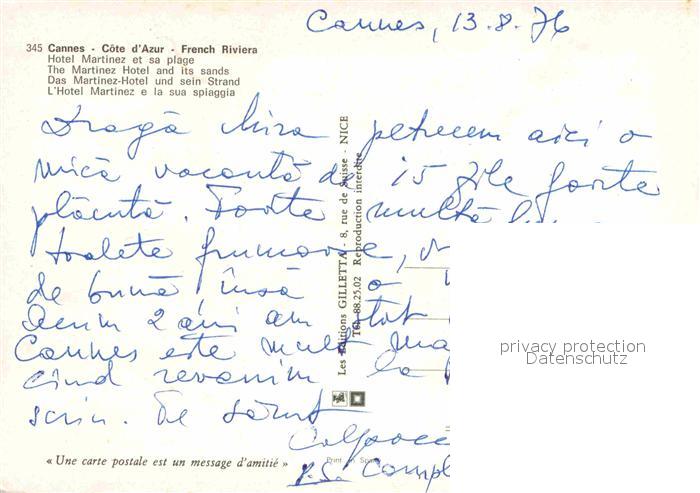 Cannes, 13.8.76
345 Cannes - Côte d'Azur - French Riviera
Hotel Martinez et sa plage
The Martinez Hotel and its sands
Das Martinez-Hotel und sein Strand
L'Hotel Martinez e la sua spiaggia
Dragă Mira petrecem aici o
mică vacanță de 15 zile foarte
plăcută. Foarte multă l...
toalete frumoase,
de bună însă o
Acum 2 ani am stat
Cannes este mult ma
cînd revenim la
scriu. Te sărut
P.S. Compl
Les Editions GILLETTA - 8, rue de Suisse - NICE
Tél. 88.25.02 Reproduction interdite
privacy protection
Datenschutz
« Une carte postale est un message d'amitié »
Print in Spain